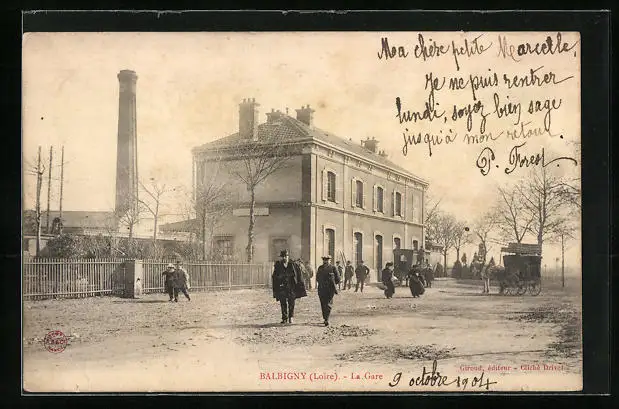 Ma chère petite Marcelle,
Je ne puis rentrer
lundi, soyez bien sage
jusqu'à mon retour
P. Forest
BALBIGNY (Loire). - La Gare
Giroud, éditeur - Cliché Brivet
9 octobre 1904